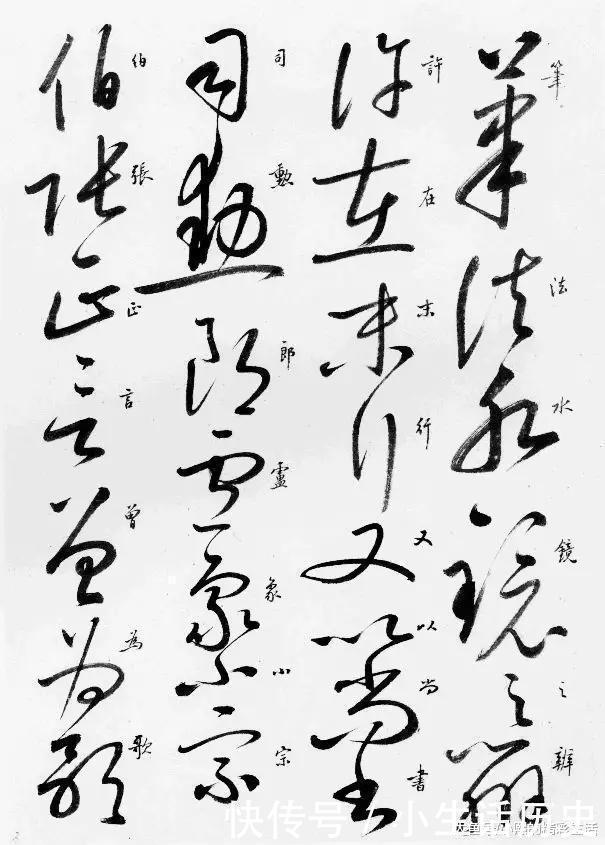 筆法水鏡之辨
許在末行又以尚書
司勳郎盧象小宗
伯張正言曾為歌
快传号/小生活历史